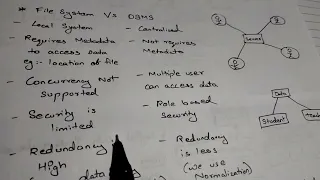 * File System Vs DBMS
- Local System - Centralised
- Requires Metadata - Not requires
to access Data Metadata
eg:- location of file
- Concurrency Not - Multiple user
Supported can access data
- Security is - Role based
limited Security
- Redundancy - Redundancy
High is less
data (we use
Normalization)
Data
Student